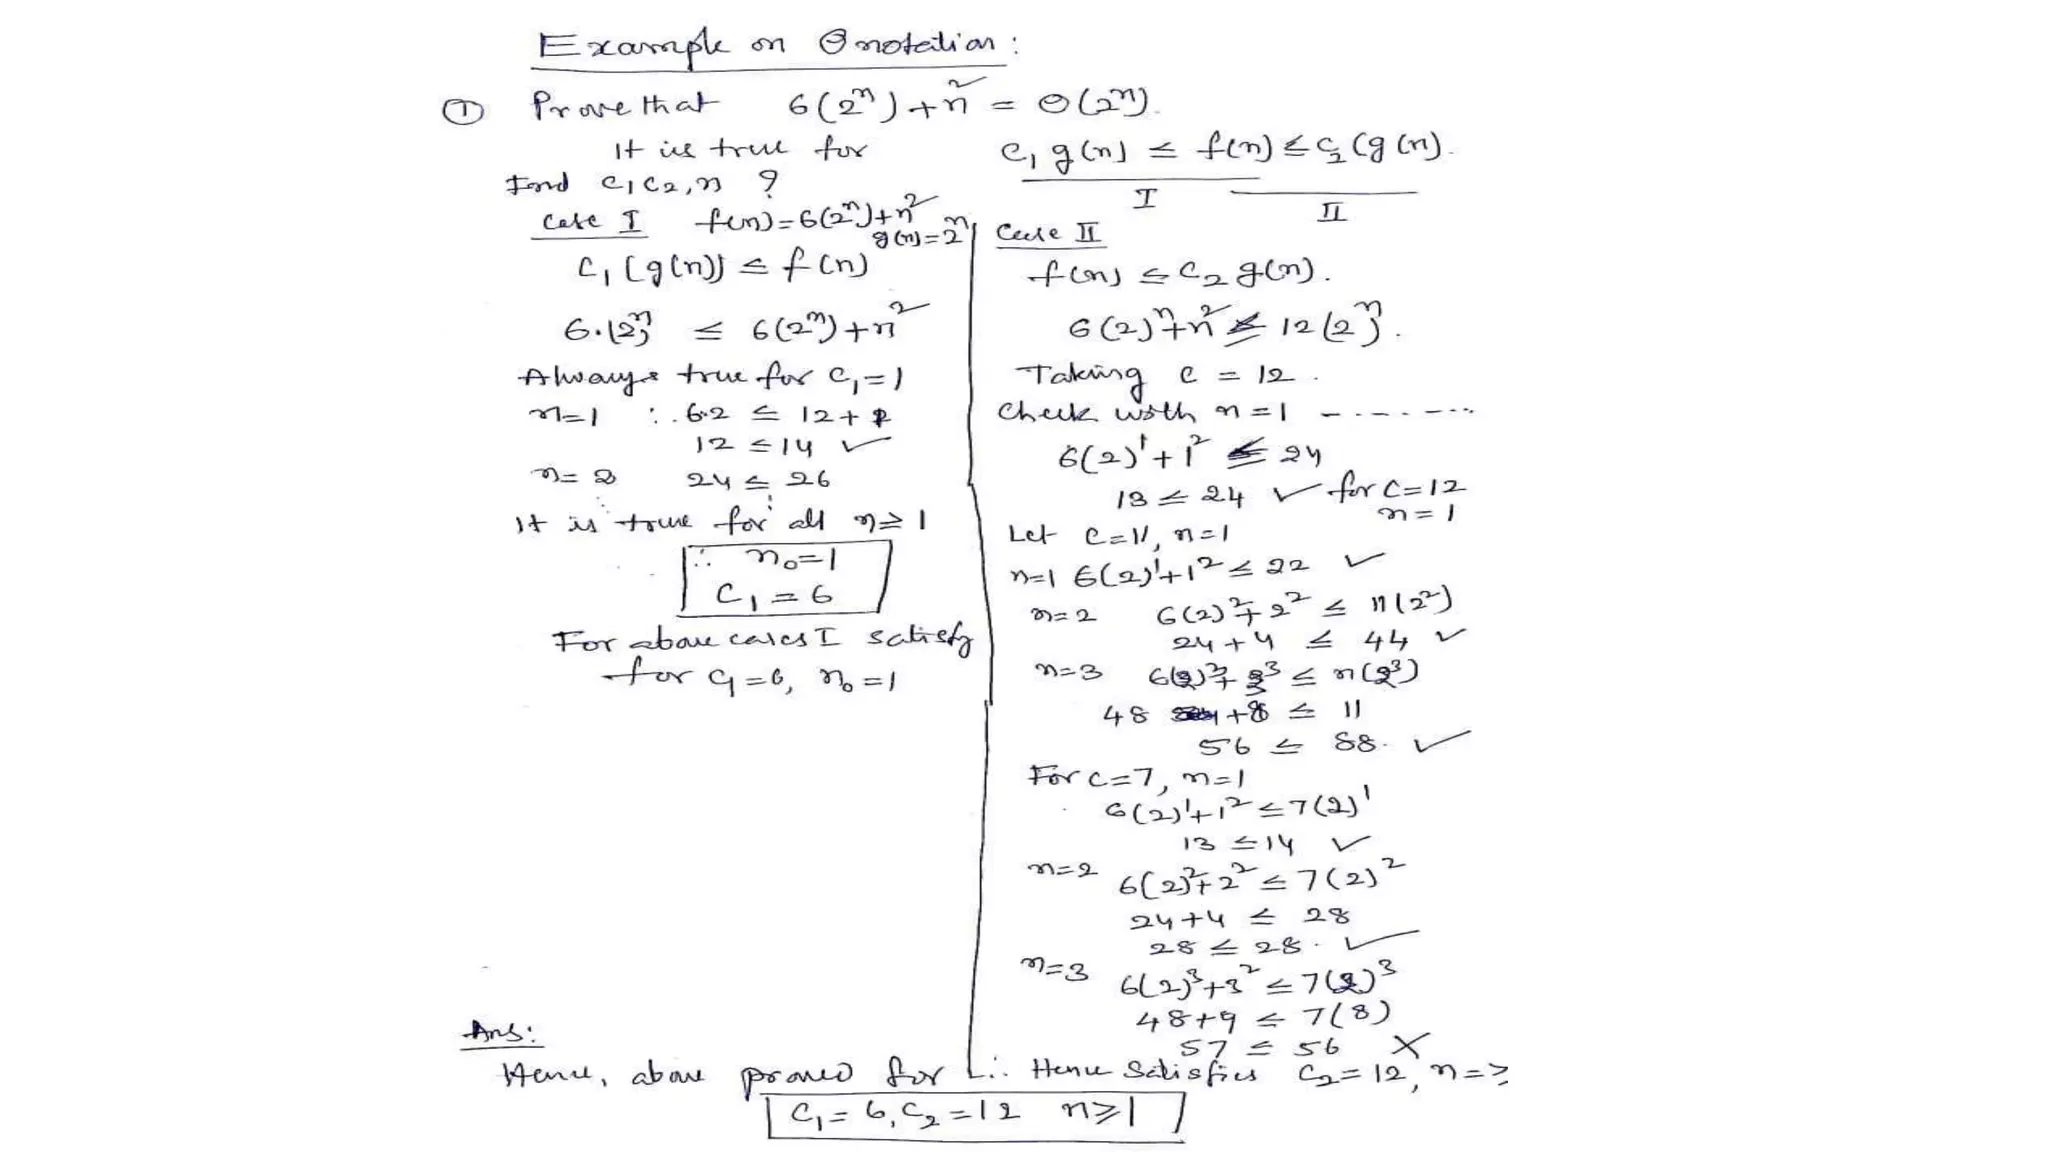 Example on Θ notation:
① Prove that 6(2ⁿ) + n² = Θ(2ⁿ).
It is true for C₁ g(n) ≤ f(n) ≤ C₂ (g(n).
I II
Find C₁ C₂, n ?
Case I f(n) = 6(2ⁿ) + n²
g(n) = 2ⁿ
C₁ [g(n)] ≤ f(n)
6·(2)ⁿ ≤ 6(2ⁿ) + n²
Always true for C₁ = 1
n=1 ∴ 6·2 ≤ 12 + 2
12 ≤ 14 ✓
n=2 24 ≤ 26
It is true for all n ≥ 1
∴ n₀ = 1
C₁ = 6
For above cases I satisfy
for C₁ = 6, n₀ = 1
Case II
f(n) ≤ C₂ g(n).
6(2)ⁿ + n² ≤ 12(2)ⁿ.
Taking C = 12.
Check with n = 1 - - - - - - -
6(2)¹ + 1² ≤ 24
13 ≤ 24 ✓ for C = 12
n = 1
Let C = 11, n = 1
n=1 6(2)¹ + 1² ≤ 22 ✓
n=2 6(2)² + 2² ≤ 11(2²)
24 + 4 ≤ 44 ✓
n=3 6(2)³ + 2³ ≤ 11(2³)
48 + 8 ≤ 11
56 ≤ 88. ✓
For C = 7, n = 1
6(2)¹ + 1² ≤ 7(2)¹
13 ≤ 14 ✓
n=2 6(2)² + 2² ≤ 7(2)²
24 + 4 ≤ 28
28 ≤ 28. ✓
n=3 6(2)³ + 3² ≤ 7(2)³
48 + 9 ≤ 7(8)
57 ≤ 56 ✗
∴ Hence Satisfies C₂ = 12, n = >
Ans:
Hence, above proved for
C₁ = 6, C₂ = 12 n ≥ 1